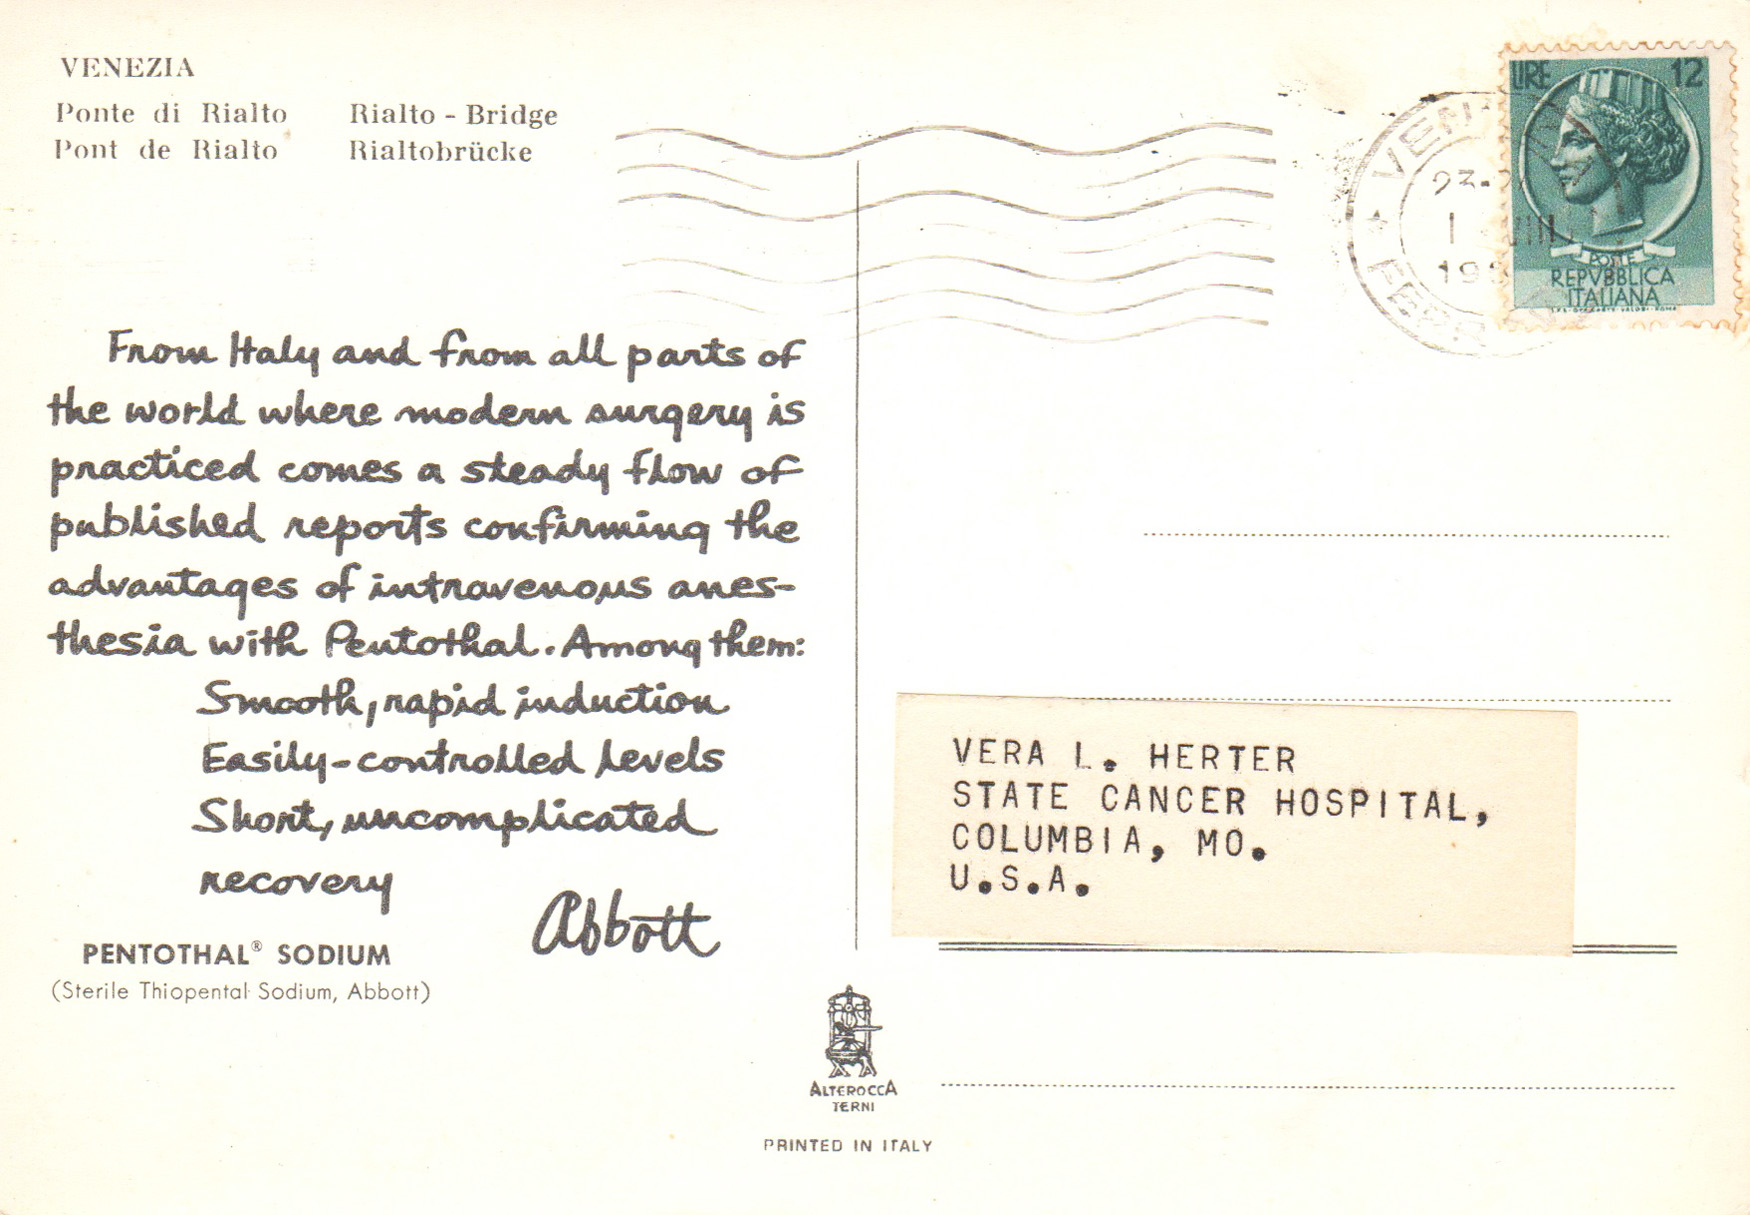 VENEZIA
Ponte di Rialto Rialto - Bridge
Pont de Rialto Rialtobrücke
LIRE 12
POSTE
REPVBBLICA
ITALIANA
23-
From Italy and from all parts of
the world where modern surgery is
practiced comes a steady flow of
published reports confirming the
advantages of intravenous anes-
thesia with Pentothal. Among them:
Smooth, rapid induction
Easily-controlled levels
Short, uncomplicated
recovery
Abbott
PENTOTHAL® SODIUM
(Sterile Thiopental Sodium, Abbott)
VERA L. HERTER
STATE CANCER HOSPITAL,
COLUMBIA, MO.
U.S.A.
ALTEROCCA
TERNI
PRINTED IN ITALY